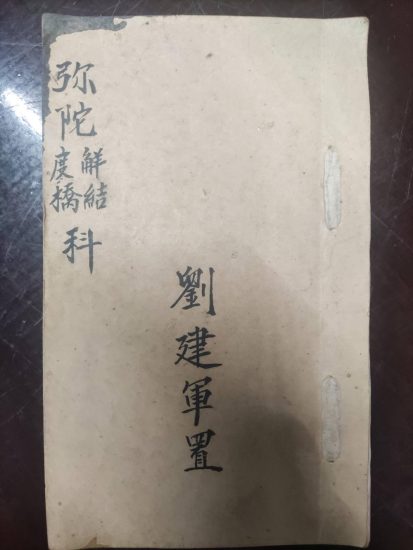 弥陀
觧結
度橋
科
劉建軍置